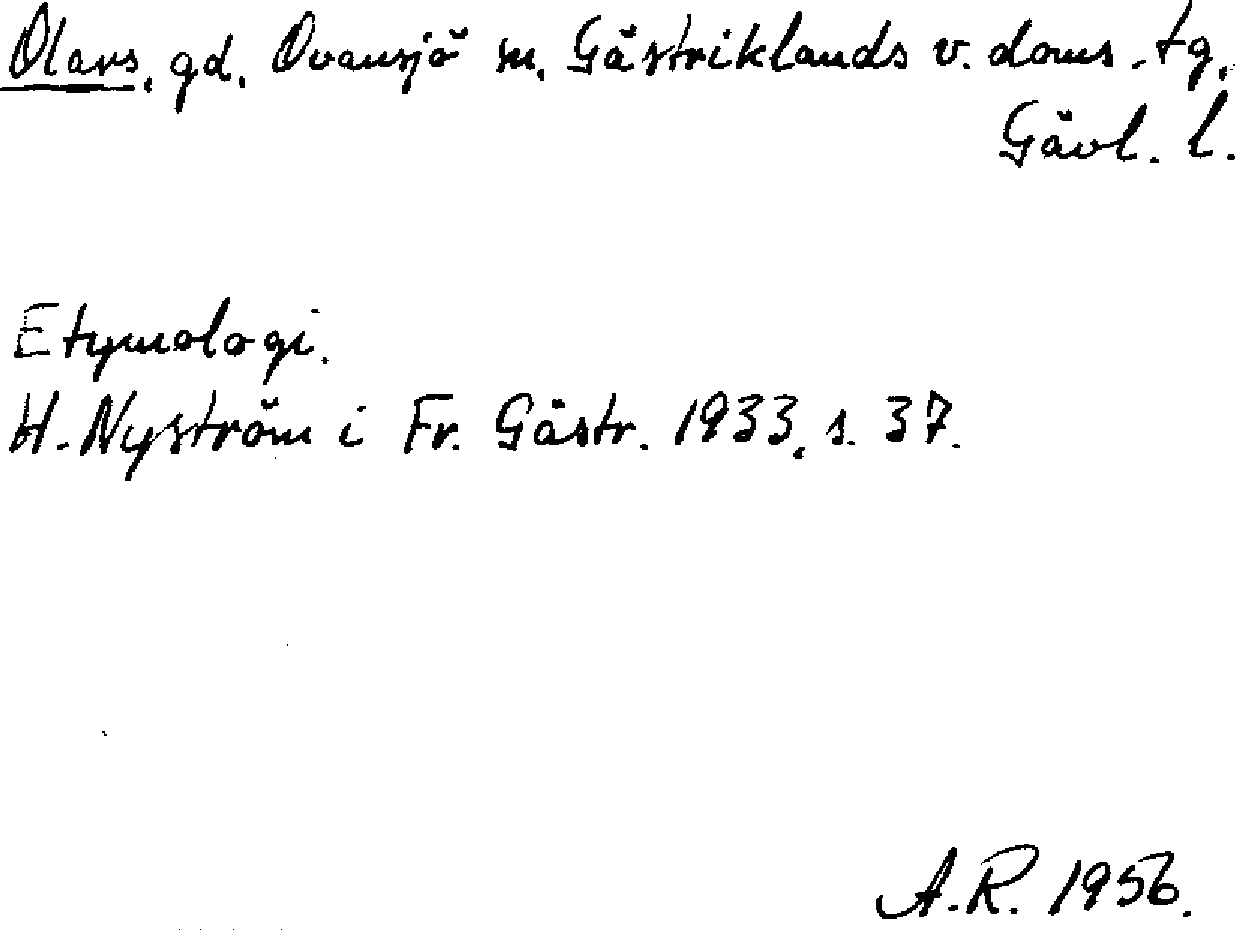 Olars, gd, Ovansjö sn, Gästriklands v. doms. tg,
Gävl. l.
Etymologi.
H. Nyström i Fr. Gästr. 1933, s. 37.
A.R. 1956.